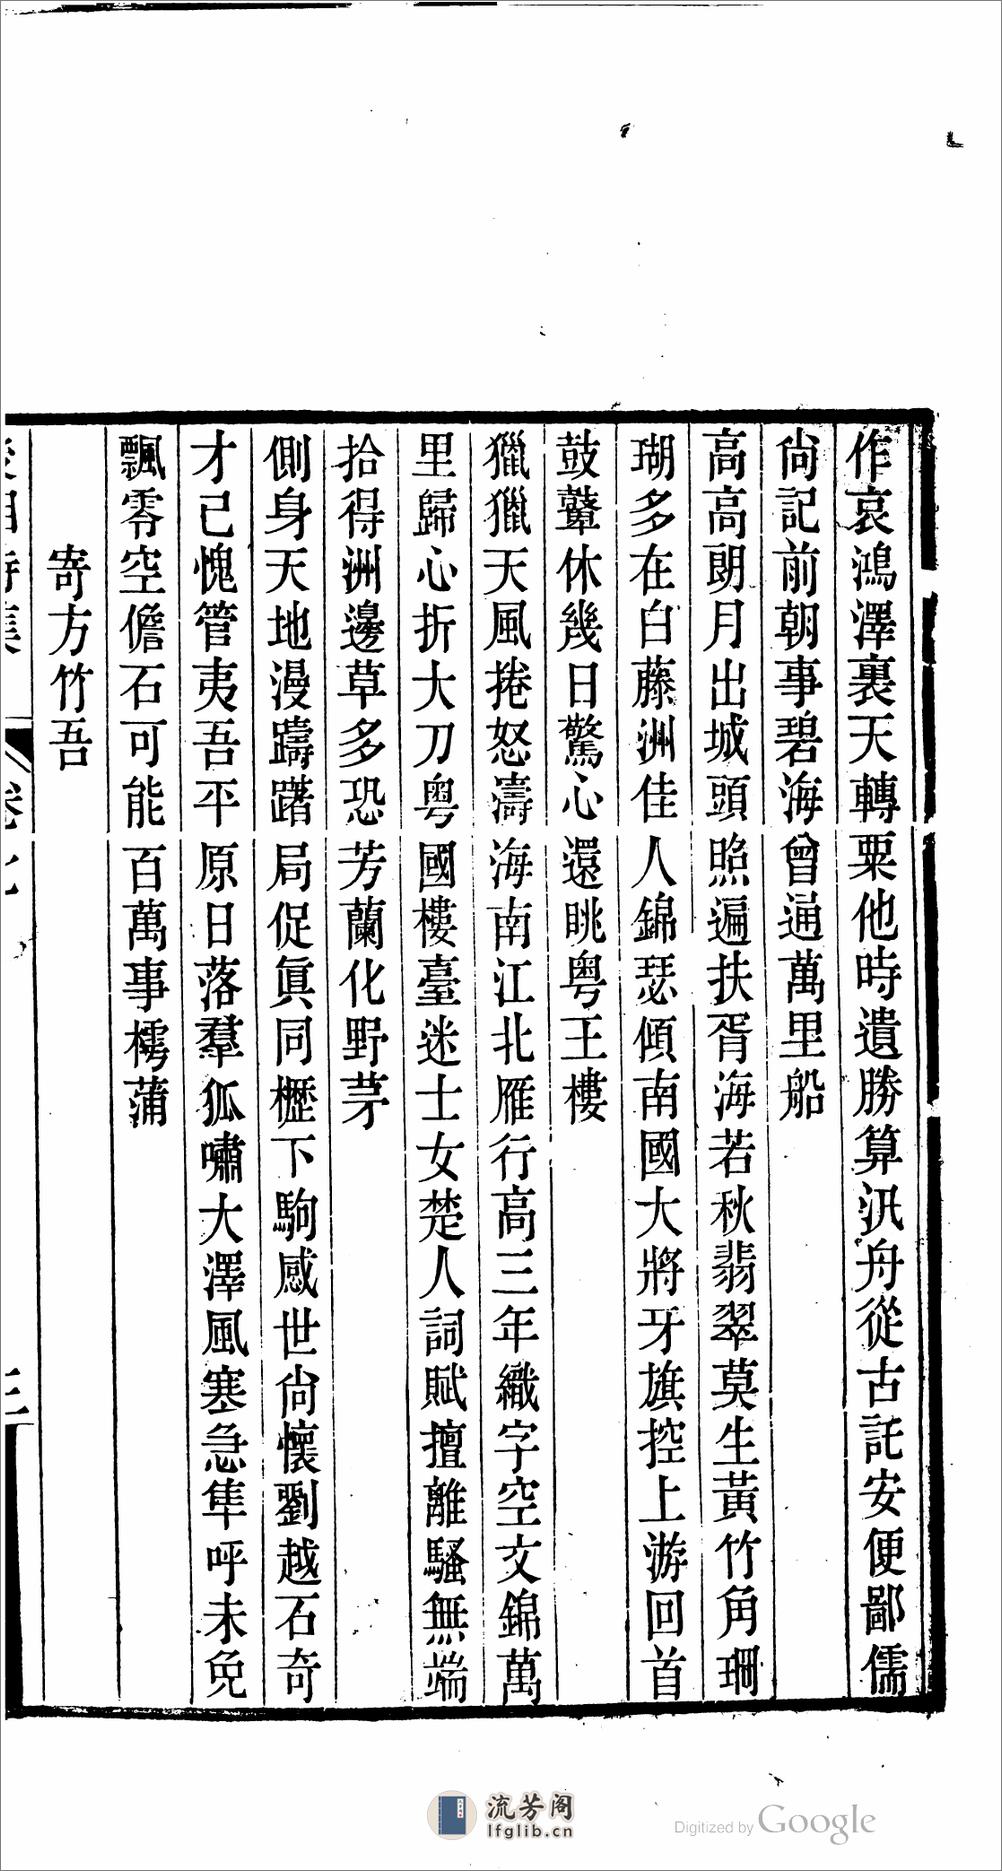 作哀鴻澤裏天轉粟他時遺勝算汎舟從古託安便鄙儒
尙記前朝事碧海曾通萬里船
高高朗月出城頭照遍扶胥海若秋翡翠莫生黃竹角珊
瑚多在白藤洲佳人錦瑟傾南國大將牙旗控上游回首
鼓鼙休幾日驚心還眺粤王樓
獵獵天風捲怒濤海南江北雁行高三年織字空文錦萬
里歸心折大刀粤國樓臺迷士女楚人詞賦擅離騷無端
拾得洲邊草多恐芳蘭化野茅
側身天地漫躊躇局促眞同櫪下駒感世尙懷劉越石奇
才已愧管夷吾平原日落羣狐嘯大澤風寒急隼呼未免
飄零空儋石可能百萬事樗蒲
寄方竹吾
詩集
卷七
三
流芳阁
lfglib.cn
Digitized by Google